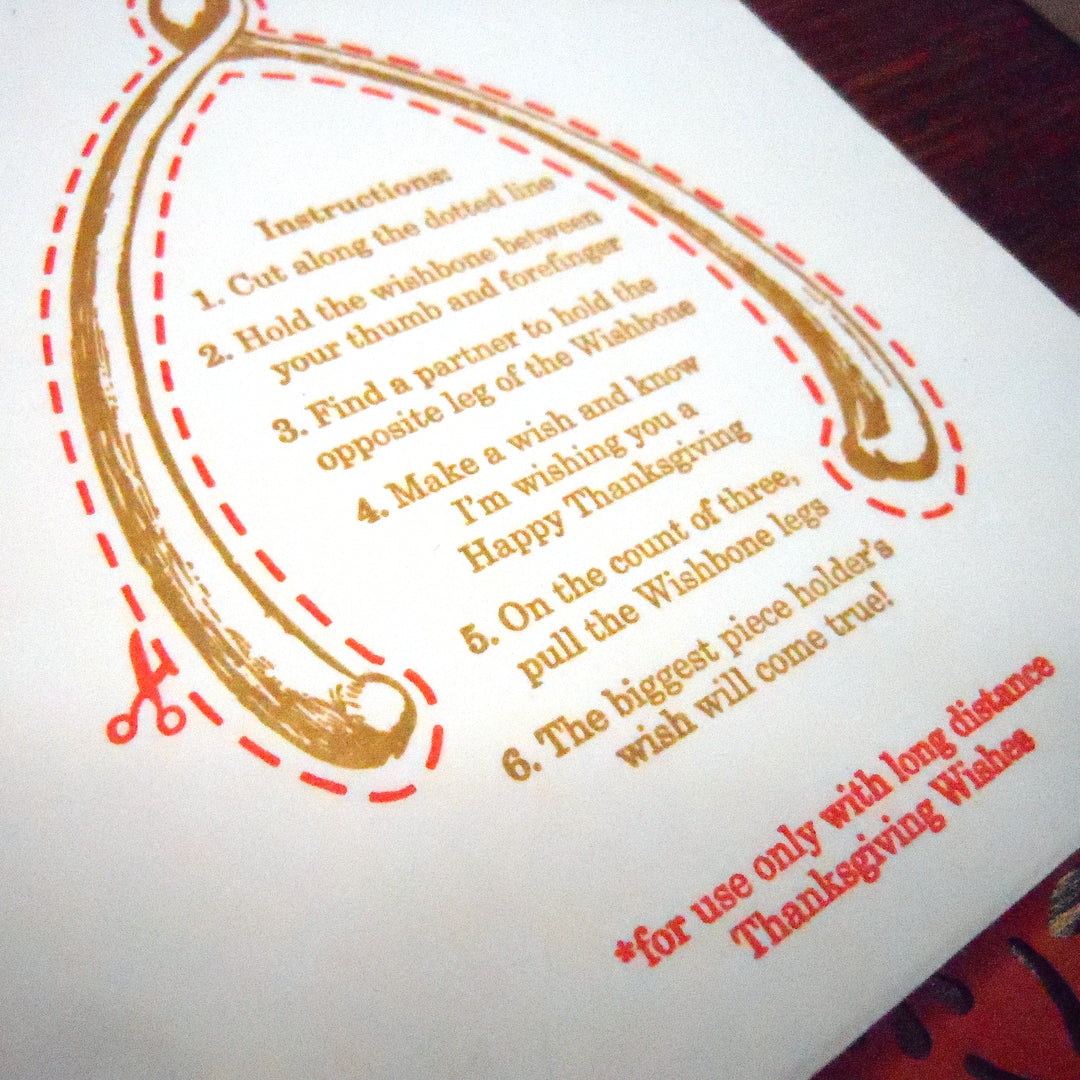 Instructions:
1. Cut along the dotted line
2. Hold the wishbone between
your thumb and forefinger
3. Find a partner to hold the
opposite leg of the Wishbone
4. Make a wish and know
I'm wishing you a
Happy Thanksgiving
5. On the count of three,
pull the Wishbone legs
6. The biggest piece holder's
wish will come true!
*for use only with long distance
Thanksgiving Wishes